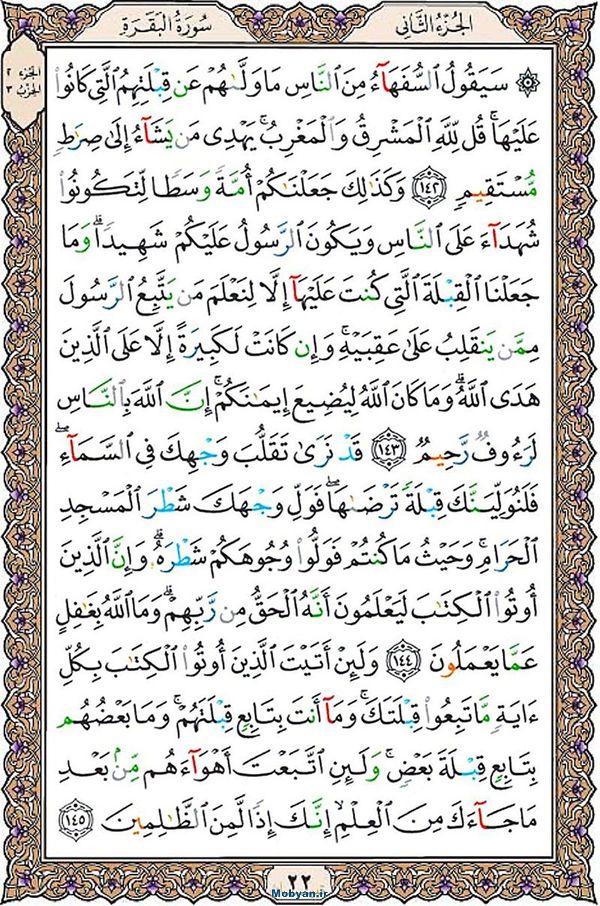 الجزء الثاني
سورة البقرة
الجزء ٢
الحزب ٣
۞ سَيَقُولُ ٱلسُّفَهَآءُ مِنَ ٱلنَّاسِ مَا وَلَّىٰهُمْ عَن قِبْلَتِهِمُ ٱلَّتِى كَانُوا۟
عَلَيْهَا ۚ قُل لِّلَّهِ ٱلْمَشْرِقُ وَٱلْمَغْرِبُ ۚ يَهْدِى مَن يَشَآءُ إِلَىٰ صِرَٰطٍ
مُّسْتَقِيمٍ ١٤٢ وَكَذَٰلِكَ جَعَلْنَٰكُمْ أُمَّةً وَسَطًا لِّتَكُونُوا۟
شُهَدَآءَ عَلَى ٱلنَّاسِ وَيَكُونَ ٱلرَّسُولُ عَلَيْكُمْ شَهِيدًا ۗ وَمَا
جَعَلْنَا ٱلْقِبْلَةَ ٱلَّتِى كُنتَ عَلَيْهَآ إِلَّا لِنَعْلَمَ مَن يَتَّبِعُ ٱلرَّسُولَ
مِمَّن يَنقَلِبُ عَلَىٰ عَقِبَيْهِ ۚ وَإِن كَانَتْ لَكَبِيرَةً إِلَّا عَلَى ٱلَّذِينَ
هَدَى ٱللَّهُ ۗ وَمَا كَانَ ٱللَّهُ لِيُضِيعَ إِيمَٰنَكُمْ ۚ إِنَّ ٱللَّهَ بِٱلنَّاسِ
لَرَءُوفٌ رَّحِيمٌ ١٤٣ قَدْ نَرَىٰ تَقَلُّبَ وَجْهِكَ فِى ٱلسَّمَآءِ ۖ
فَلَنُوَلِّيَنَّكَ قِبْلَةً تَرْضَىٰهَا ۚ فَوَلِّ وَجْهَكَ شَطْرَ ٱلْمَسْجِدِ
ٱلْحَرَامِ ۚ وَحَيْثُ مَا كُنتُمْ فَوَلُّوا۟ وُجُوهَكُمْ شَطْرَهُۥ ۗ وَإِنَّ ٱلَّذِينَ
أُوتُوا۟ ٱلْكِتَٰبَ لَيَعْلَمُونَ أَنَّهُ ٱلْحَقُّ مِن رَّبِّهِمْ ۗ وَمَا ٱللَّهُ بِغَٰفِلٍ
عَمَّا يَعْمَلُونَ ١٤٤ وَلَئِنْ أَتَيْتَ ٱلَّذِينَ أُوتُوا۟ ٱلْكِتَٰبَ بِكُلِّ
ءَايَةٍ مَّا تَبِعُوا۟ قِبْلَتَكَ ۚ وَمَآ أَنتَ بِتَابِعٍ قِبْلَتَهُمْ ۚ وَمَا بَعْضُهُم
بِتَابِعٍ قِبْلَةَ بَعْضٍ ۚ وَلَئِنِ ٱتَّبَعْتَ أَهْوَآءَهُم مِّنۢ بَعْدِ
مَا جَآءَكَ مِنَ ٱلْعِلْمِ ۙ إِنَّكَ إِذًا لَّمِنَ ٱلظَّٰلِمِينَ ١٤٥
٢٢
Mobyan.ir